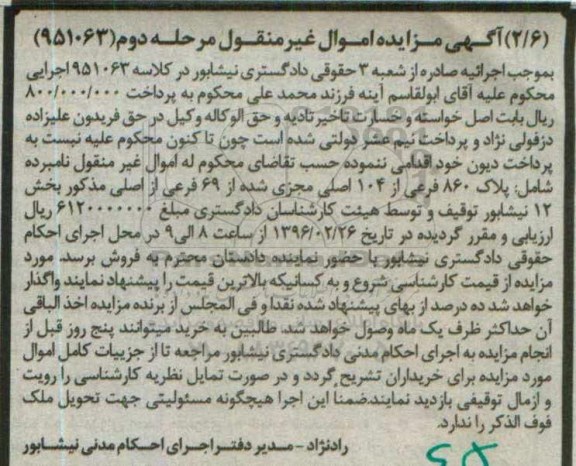 (۲/۶) آگهی مزایده اموال غیر منقول مرحله دوم (۹۵۱۰۶۳)
بموجب اجرائیه صادره از شعبه ۳ حقوقی دادگستری نیشابور در کلاسه ۹۵۱۰۶۳ اجرایی
محکوم علیه آقای ابولقاسم آینه فرزند محمد علی محکوم به پرداخت ۸۰۰/۰۰۰/۰۰۰
ریال بابت اصل خواسته و خسارت تاخیر تادیه و حق الوکاله وکیل در حق فریدون علیزاده
دزفولی نژاد و پرداخت نیم عشر دولتی شده است چون تا کنون محکوم علیه نسبت به
پرداخت دیون خود اقدامی ننموده حسب تقاضای محکوم له اموال غیر منقول نامبرده
شامل: پلاک ۸۶۰ فرعی از ۱۰۴ اصلی مجزی شده از ۶۹ فرعی از اصلی مذکور بخش
۱۲ نیشابور توقیف و توسط هیئت کارشناسان دادگستری مبلغ ۶۱۲۰۰۰۰۰۰۰ ریال
ارزیابی و مقرر گردیده در تاریخ ۱۳۹۶/۰۲/۲۶ از ساعت ۸ الی ۹ در محل اجرای احکام
حقوقی دادگستری نیشابور با حضور نماینده دادستان محترم به فروش برسد. مورد
مزایده از قیمت کارشناسی شروع و به کسانیکه بالاترین قیمت را پیشنهاد نمایند واگذار
خواهد شد ده درصد از بهای پیشنهاد شده نقدا و فی المجلس از برنده مزایده اخذ الباقی
آن حداکثر ظرف یک ماه وصول خواهد شد. طالبین به خرید میتوانند پنج روز قبل از
انجام مزایده به اجرای احکام مدنی دادگستری نیشابور مراجعه تا از جزییات کامل اموال
مورد مزایده برای خریداران تشریح گردد و در صورت تمایل نظریه کارشناسی را رویت
و از مال توقیفی بازدید نمایند. ضمنا این اجرا هیچگونه مسئولیتی جهت تحویل ملک
فوق الذکر را ندارد.
رادنژاد - مدیر دفتر اجرای احکام مدنی نیشابور